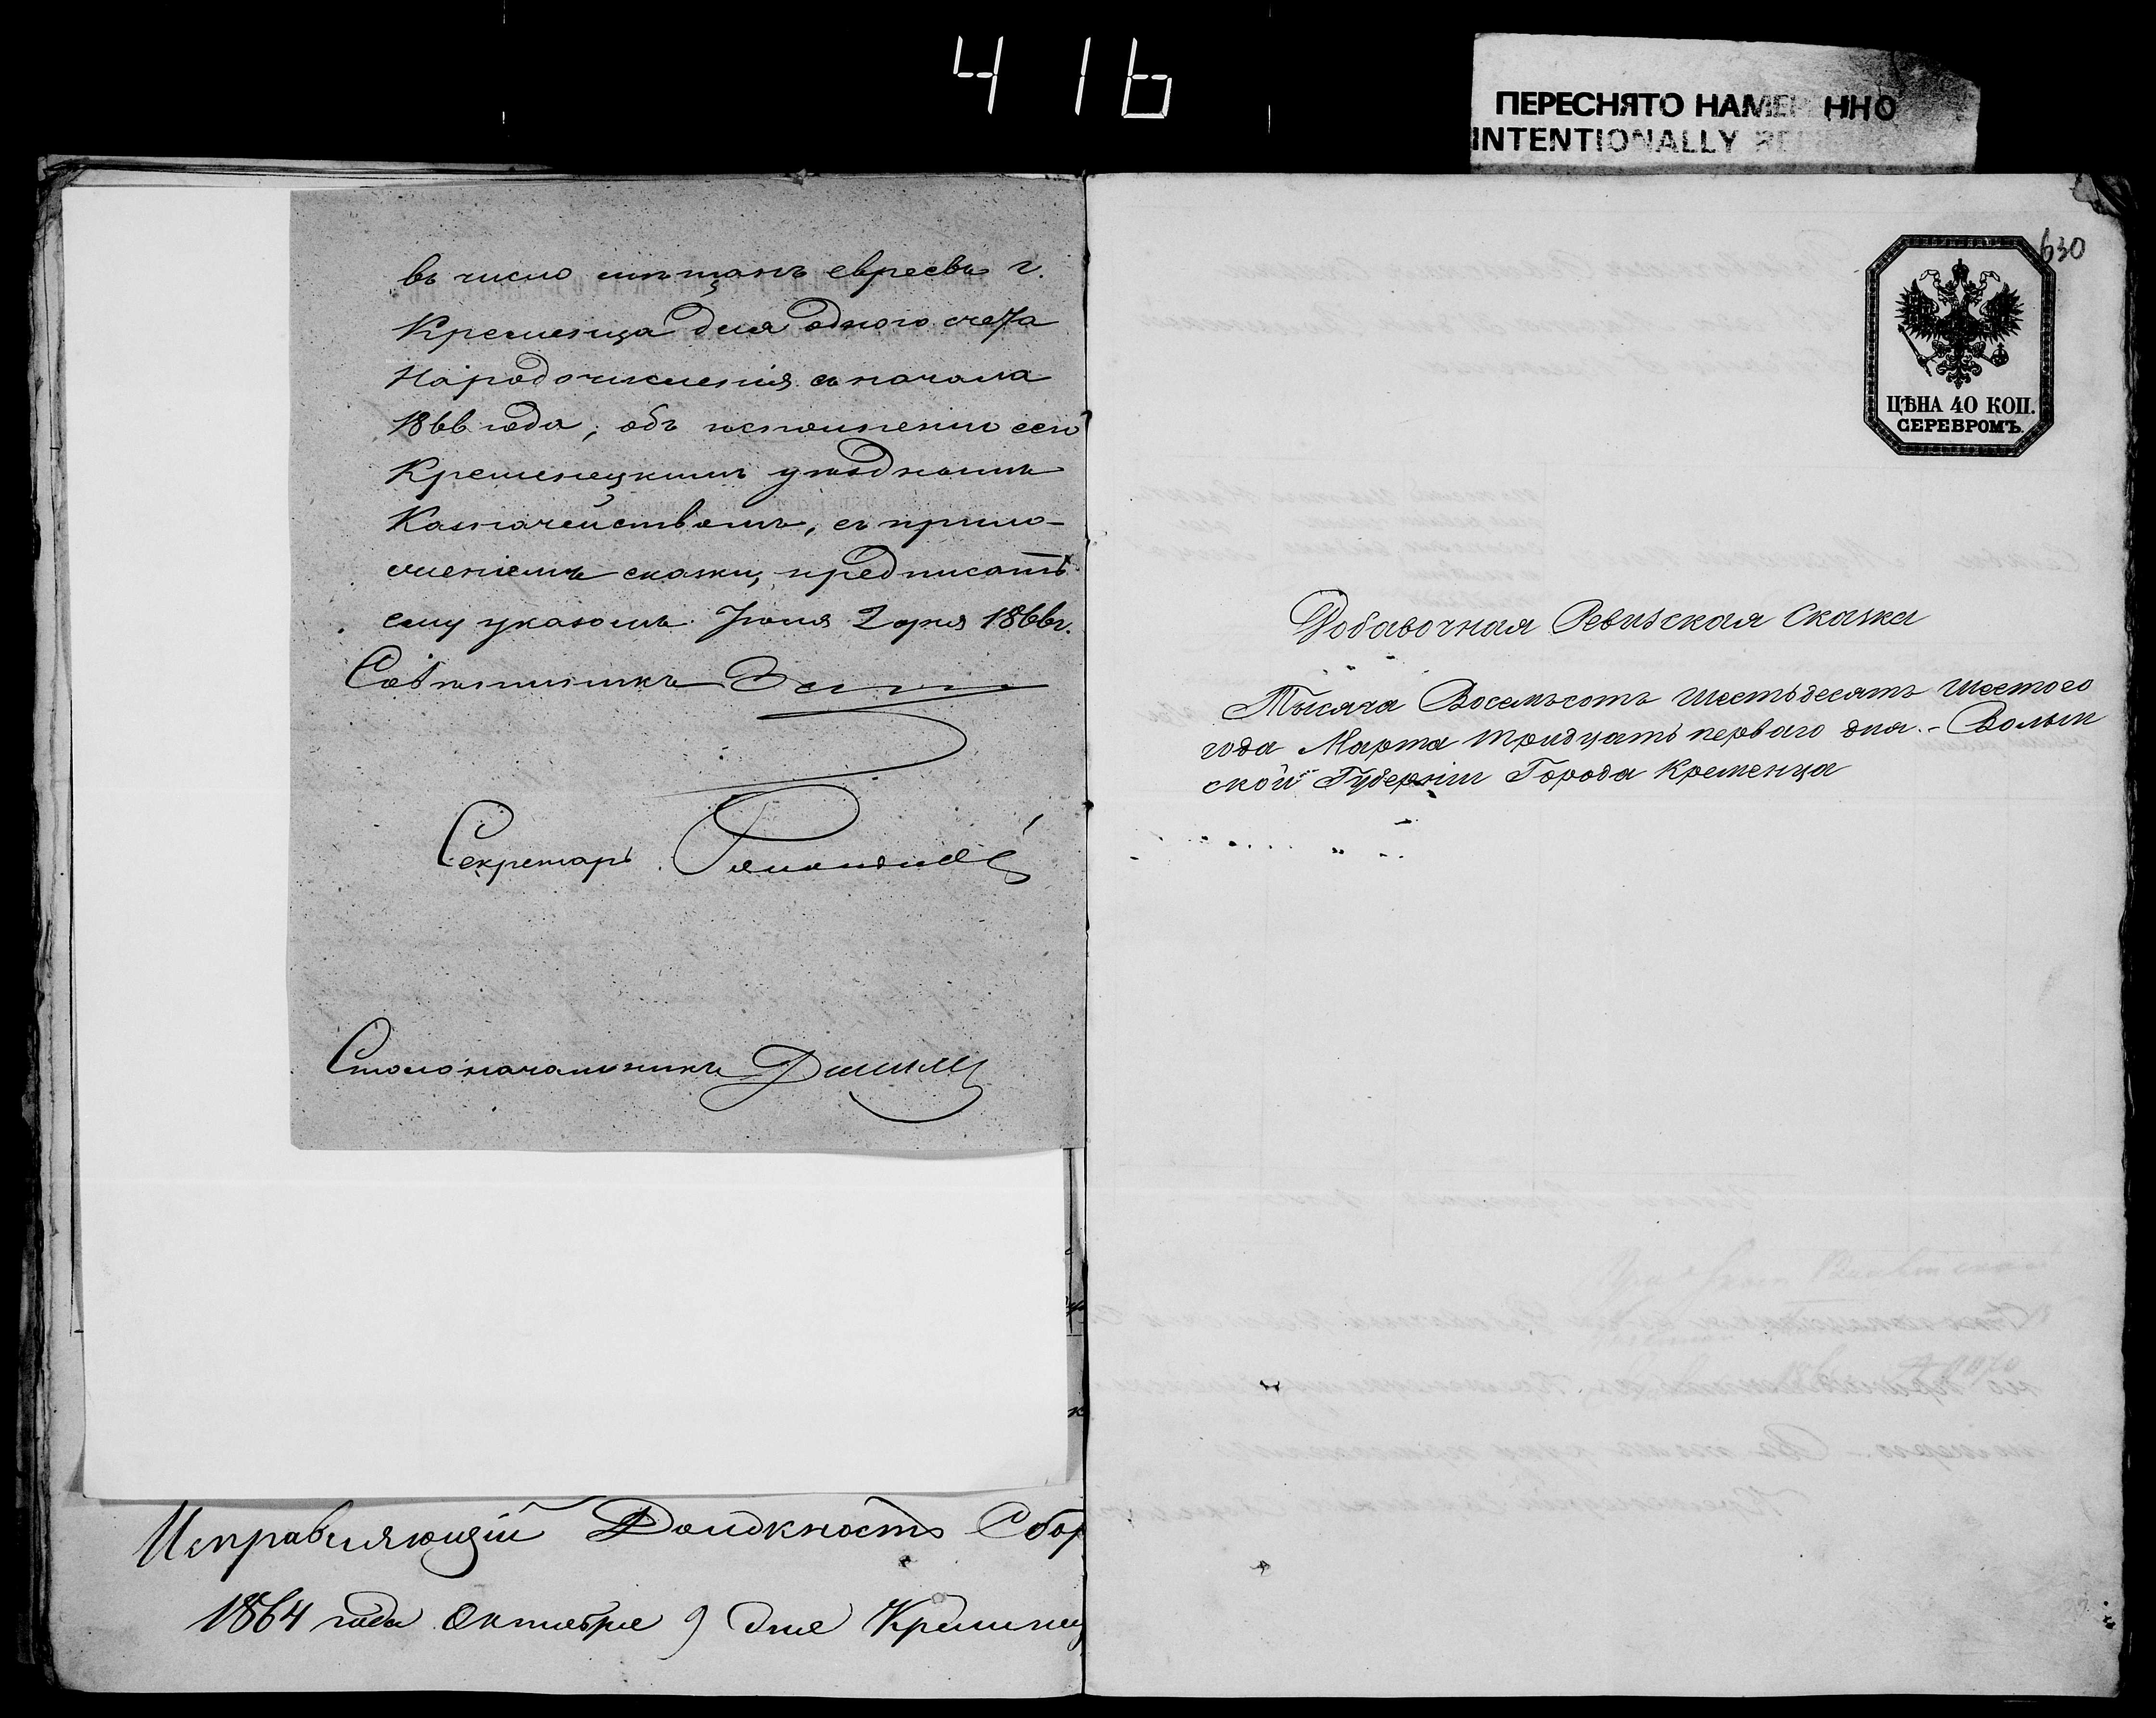 416
ПЕРЕСНЯТО НАМЕР ННО
INTENTIONALLY
въ число мѣщанъ евреевъ г.
Кременца для одного счета
Народочисленія съ начала
1866 года, объ исполненіи сего
Кременецкимъ уѣзднымъ
Казначействомъ, съ прило-
женіемъ сказки, предписать
ему указомъ. Іюня 2 дня 1866 г.
Совѣтникъ
Секретарь
Столоначальникъ
Исправляющій Должность Сбор
1864 года Октября 9 дня Кременец
630
ЦѢНА 40 КОП.
СЕРЕБРОМЪ.
Добавочная Ревизская Сказка
Тысяча Восемьсотъ шестьдесятъ шестого
года Марта тридцать перваго дня.- Волын
ской Губерніи Города Кременца